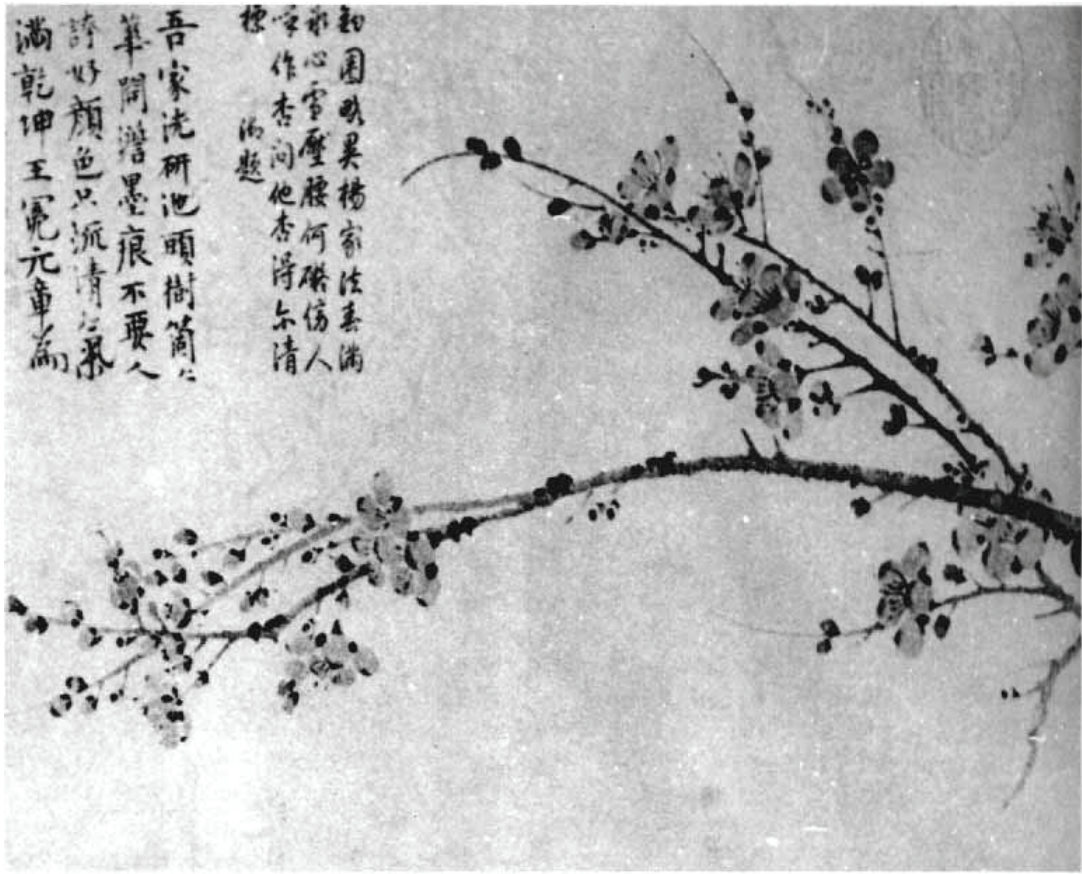 鈎圈略異楊家法春滿
冰心雪壓腰何礙傍人
喚作杏問他杏得尔清
標
御題
吾家洗研池頭樹箇〻
華開澹墨痕不要人
誇好顏色只流清氣
滿乾坤王冕元章為